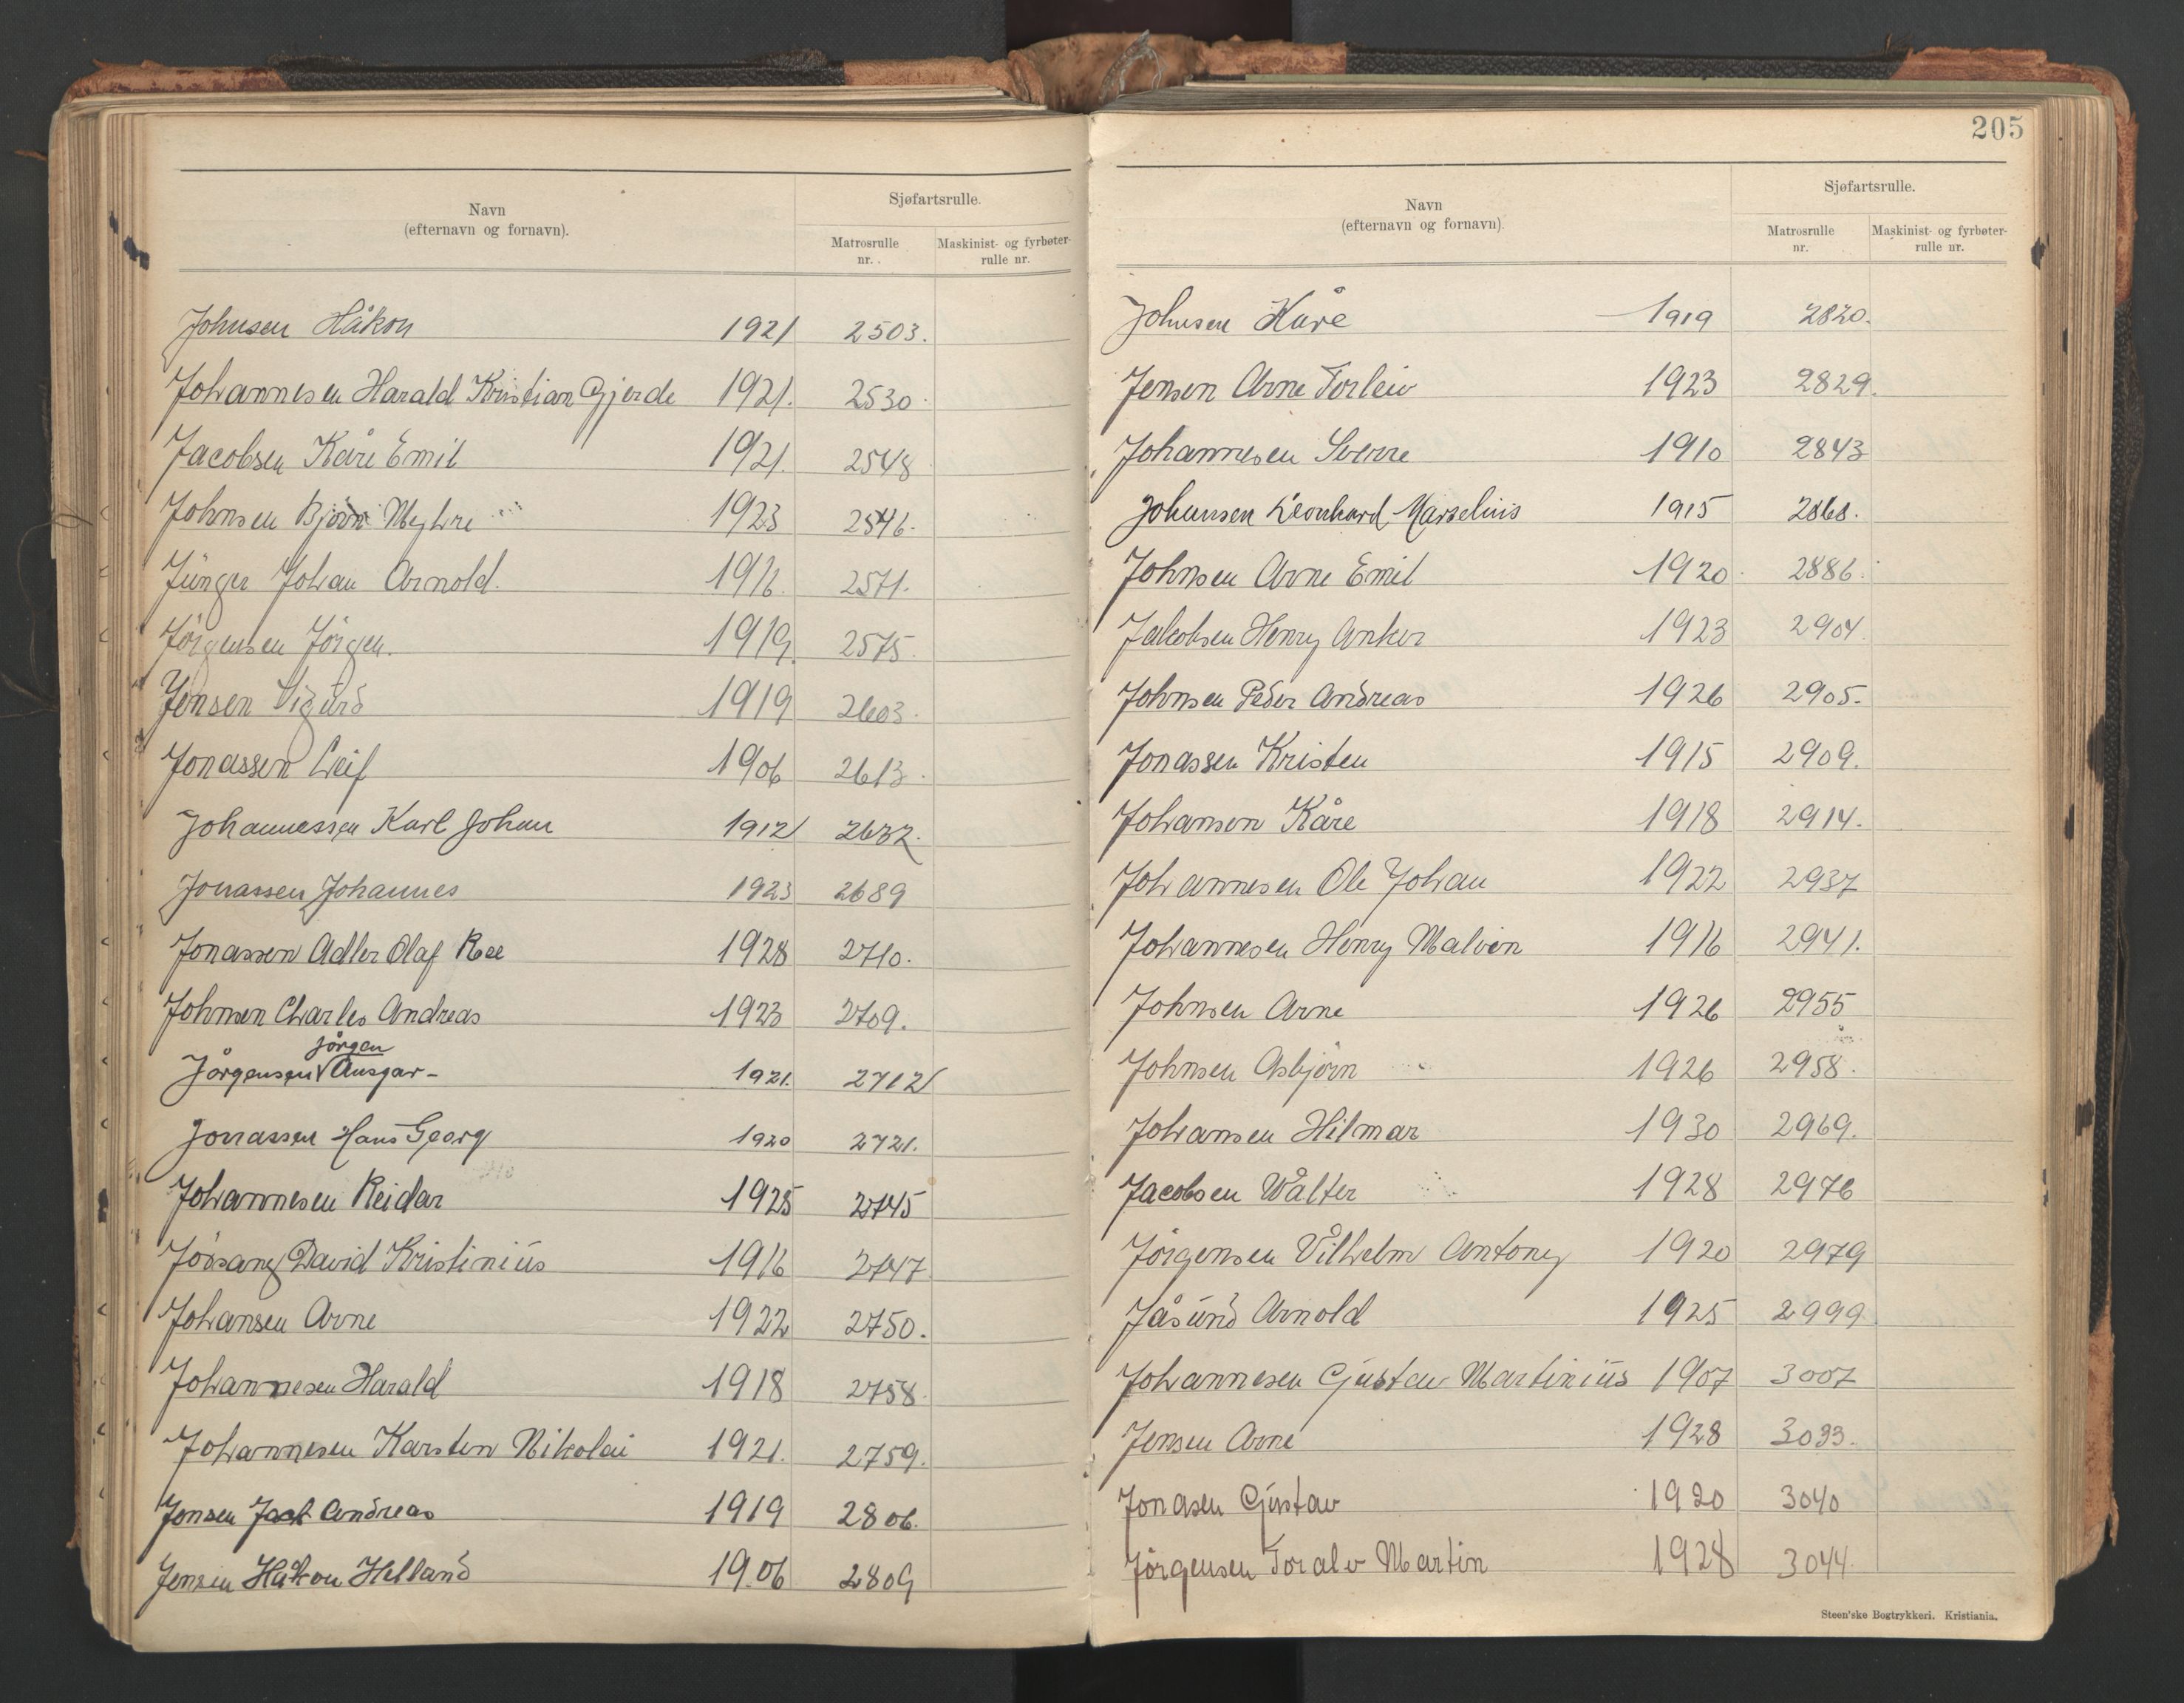 Navn
(efternavn og fornavn).
Sjøfartsrulle.
Matrosrulle nr.
Maskinist- og fyrbøter-rulle nr.
Johnsen Håkon 1921 2503.
Johannesen Harald Kristian Gjerde 1921. 2530.
Jacobsen Kåre Emil 1921. 2548
Johnsen Bjørn Myhre 1923 2546.
Jünger Johan Arnold. 1916. 2571.
Jörgensen Jörgen. 1919. 2575.
Jensen Sigurd 1919 2603.
Jonassen Leif 1906 2613.
Johannessen Karl Johan 1912 2632.
Jonassen Johannes 1923 2689
Jonassen Adler Olaf Roe 1928 2710.
Johnsen Charles Andreas 1923 2709.
Jørgen
Jørgensen √ Ansgar- 1921. 2712
Jonassen Hans Georg 1920 2721.
Johannesen Reidar 1925 2745
Jössang David Kristinius 1916 2747
Johansen Arne 1922 2750.
Johannesen Harald 1918 2758.
Johannesen Karsten Nikolai 1921. 2759.
Jensen Jack Andreas 1919 2806.
Jensen Håkon Helland 1906 2809
205
Navn
(efternavn og fornavn).
Sjøfartsrulle.
Matrosrulle nr.
Maskinist- og fyrbøter-rulle nr.
Johnsen Kåre 1919 2820.
Jensen Arne Torleiv 1923 2829.
Johannesen Sverre 1910 2843
Johansen Leonhard Marselius 1915 2868.
Johnsen Arne Emil 1920. 2886.
Jakobsen Henry Anker 1923 2904.
Johnsen Peder Andreas 1926 2905.
Jonassen Kristen 1915 2909.
Johansen Kåre 1918 2914.
Johannesen Ole Johan 1922 2937
Johannesen Henry Malvin 1916 2941.
Johnsen Arne 1926 2955
Johnsen Asbjörn 1926 2958.
Johansen Hilmar 1930 2969.
Jacobsen Walter 1928 2976
Jörgensen Vilhelm Antony 1920 2979
Jåsund Arnold 1925 2999
Johannesen Gustav Martinius 1907 3007
Jensen Arne 1928 3033.
Jonasen Gustav 1920 3040
Jörgensen Toralv Martin 1928 3044
Steen'ske Bogtrykkeri. Kristiania.